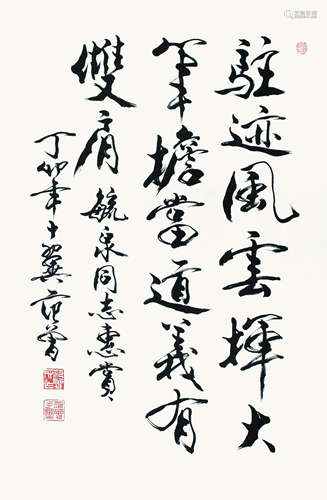 駐迹風雲揮大
筆擔當道義有
雙肩
毓泉同志惠賞
丁卯年十翼范曾